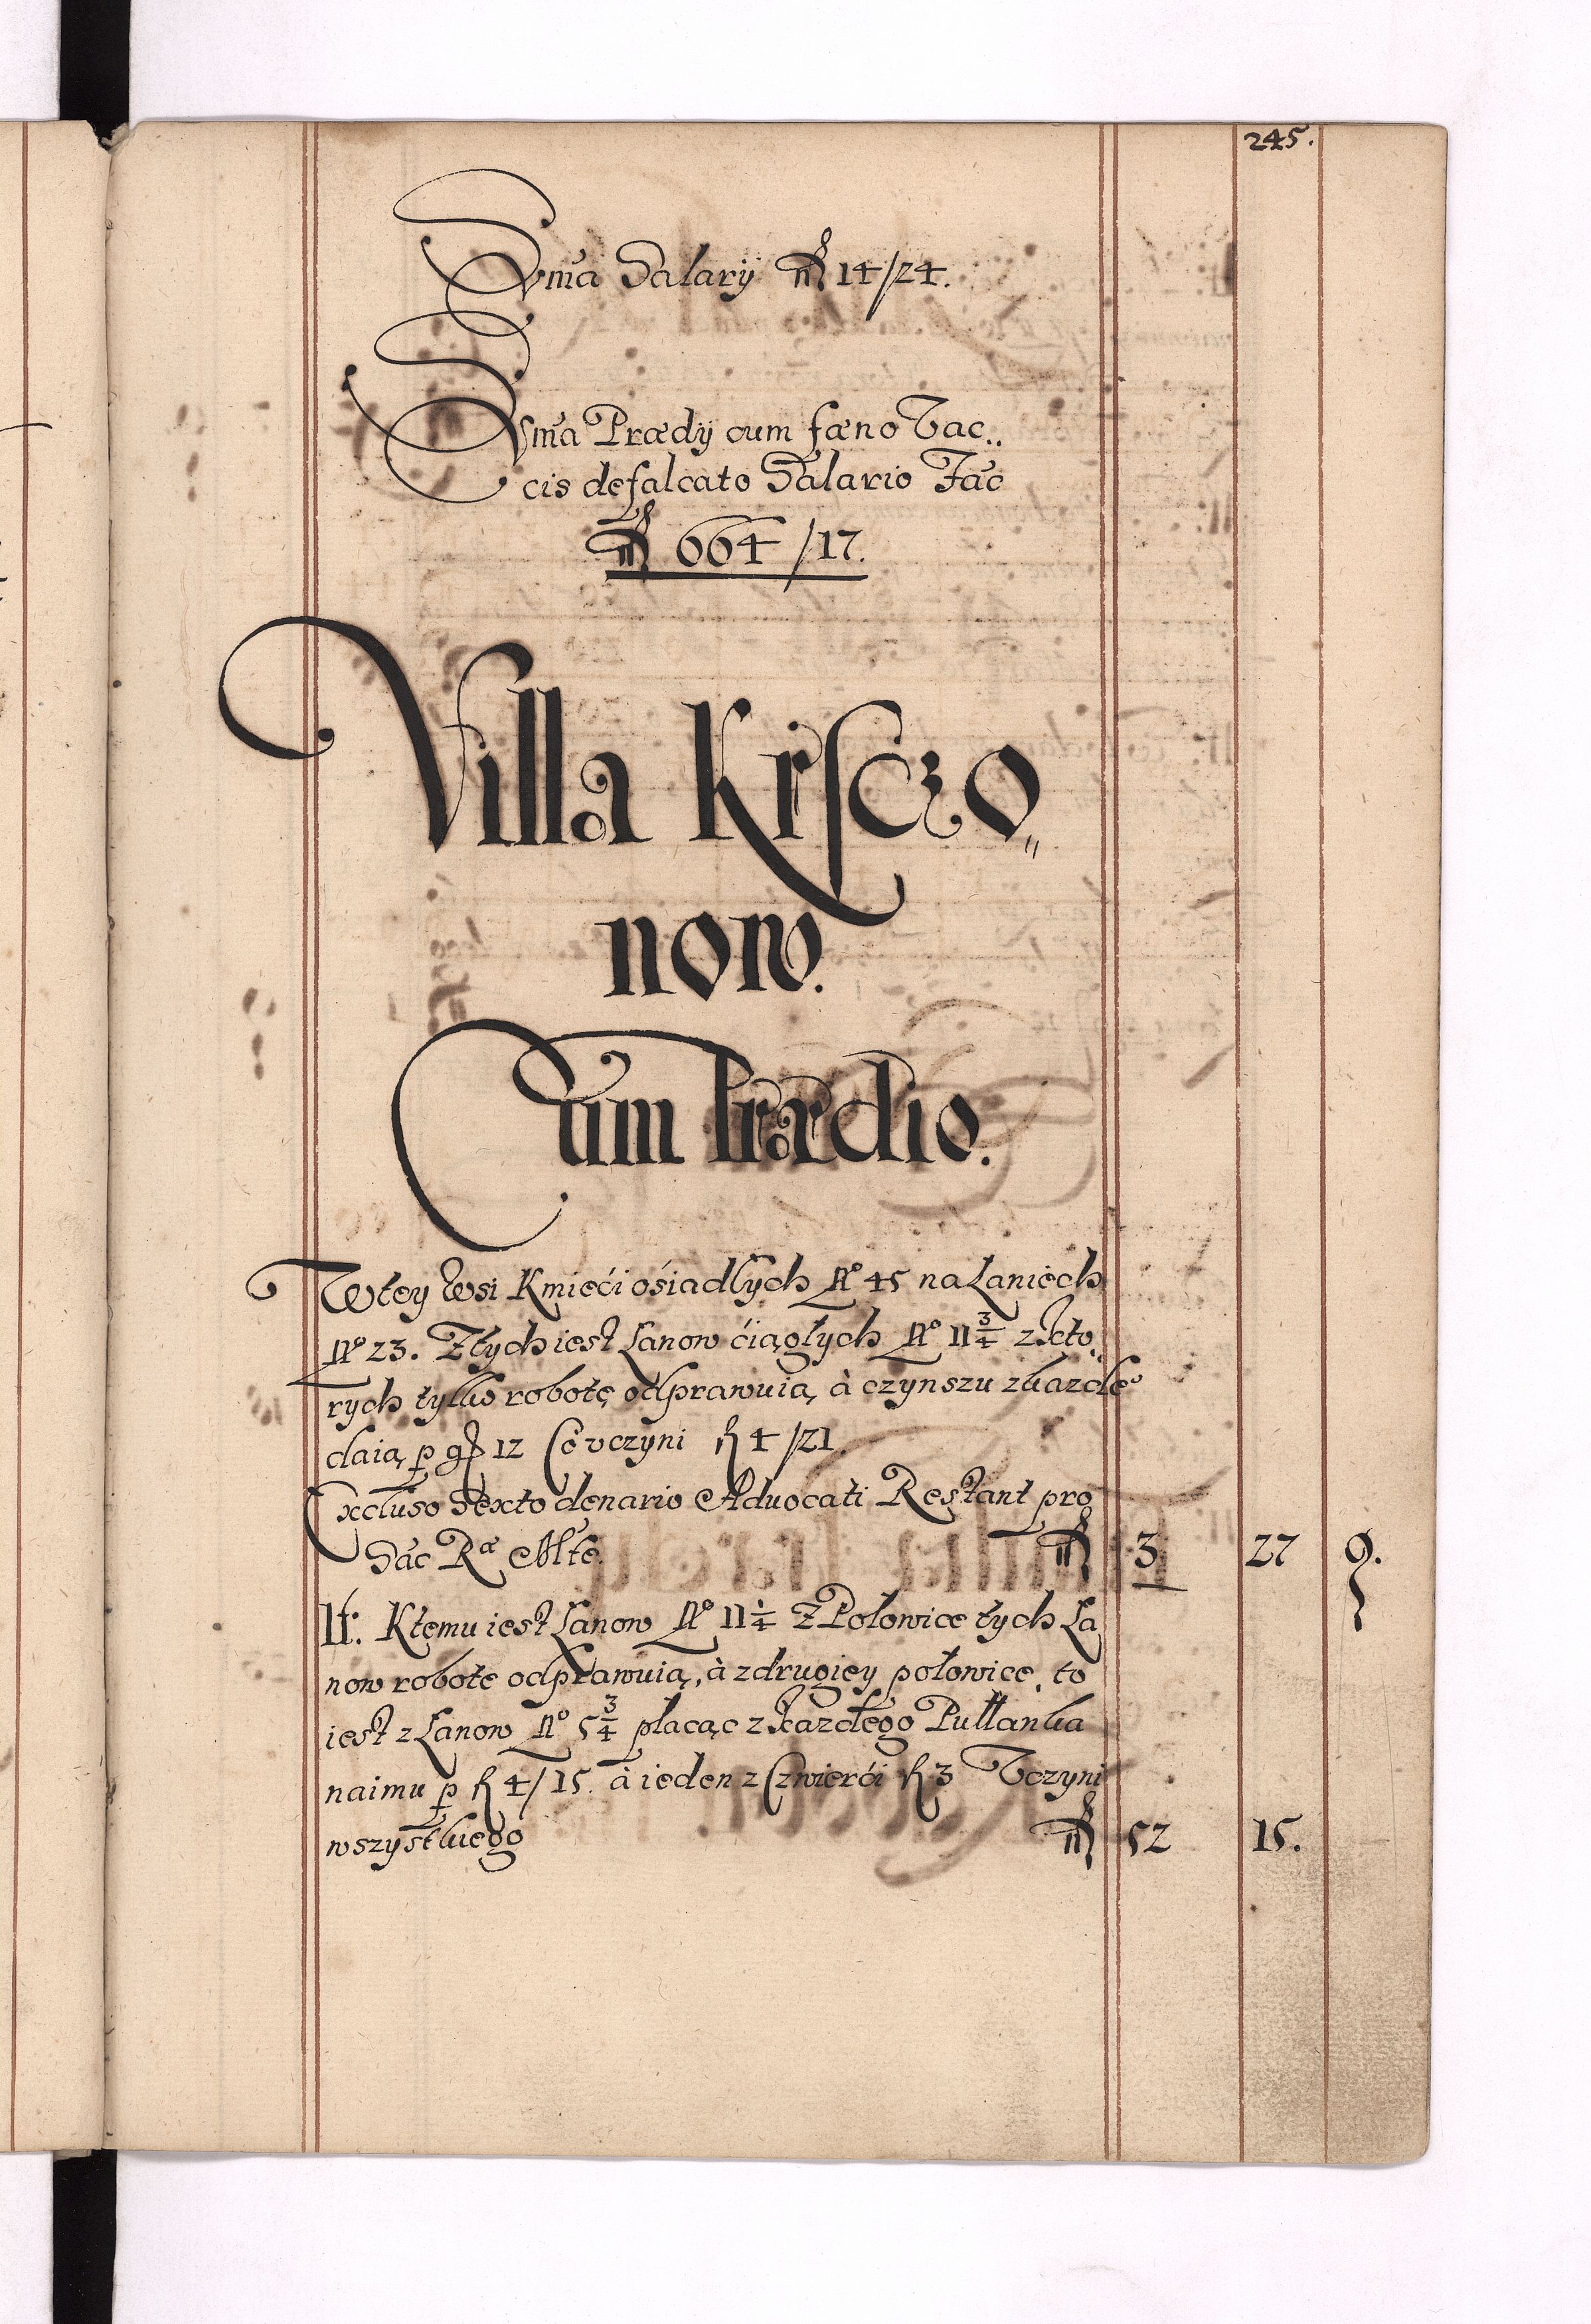 245.
Sum̃a Salarij fl 14/24.
Sum̃a Prædij cum fæno Vac„
cis defalcato Salario Fac̃
fl 664/17.
Villa Krſczo„
now.
Cum Prædio.
Wtey Wsi Kmieći ośiadłych Nº 45 na Łaniech
Nº 23. Z tych iest Łanow ćiągłych Nº 11 3/4 z kto„
rych tylko robotę odprawuią, à czynszu z kazdeº
daią p gr 12 Co vczyni fl 4/21.
Excluso Sexto denario Advocati Restant pro
Sac̃ Rª Mtte. fl 3 27 9.
It: Ktemu iest Łanow Nº 11 1/4 Z Połowice tych Ła
now robote odprawuią, à z drugiey połowice, to
iest z Łanow Nº 5 3/4 płacąc z kazdego Pułłanka
naimu p fl 4/15. à ieden z Czwierći fl 3 Vczyni
wszystkiego fl 52 15.